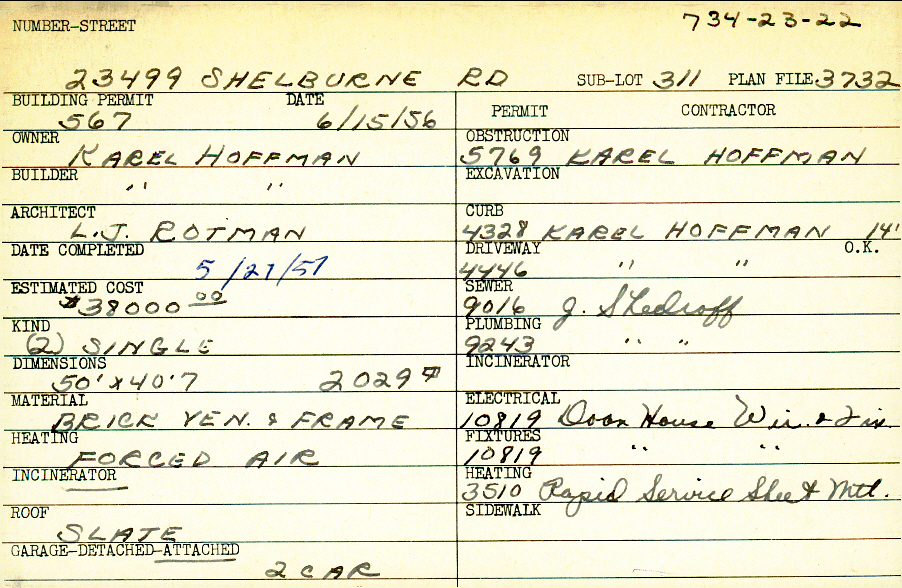 NUMBER-STREET 734-23-22
23499 SHELBURNE RD SUB-LOT 311 PLAN FILE 3732
BUILDING PERMIT DATE
567 6/15/56
OWNER
KAREL HOFFMAN
BUILDER
" "
ARCHITECT
L.J. ROTMAN
DATE COMPLETED
5/27/57
ESTIMATED COST
$38000 00
KIND
(2) SINGLE
DIMENSIONS
50' x 40'7 2029#
MATERIAL
BRICK VEN. & FRAME
HEATING
FORCED AIR
INCINERATOR
ROOF
SLATE
GARAGE-DETACHED-ATTACHED
2 CAR
PERMIT CONTRACTOR
OBSTRUCTION
5769 KAREL HOFFMAN
EXCAVATION
CURB
4328 KAREL HOFFMAN 14'
DRIVEWAY O.K.
4446 " "
SEWER
9016 J. Shedroff
PLUMBING
9243 " "
INCINERATOR
ELECTRICAL
10819 Doan House Wir. & Fix.
FIXTURES
10819 " "
HEATING
3510 Rapid Service Sheet Mtl.
SIDEWALK